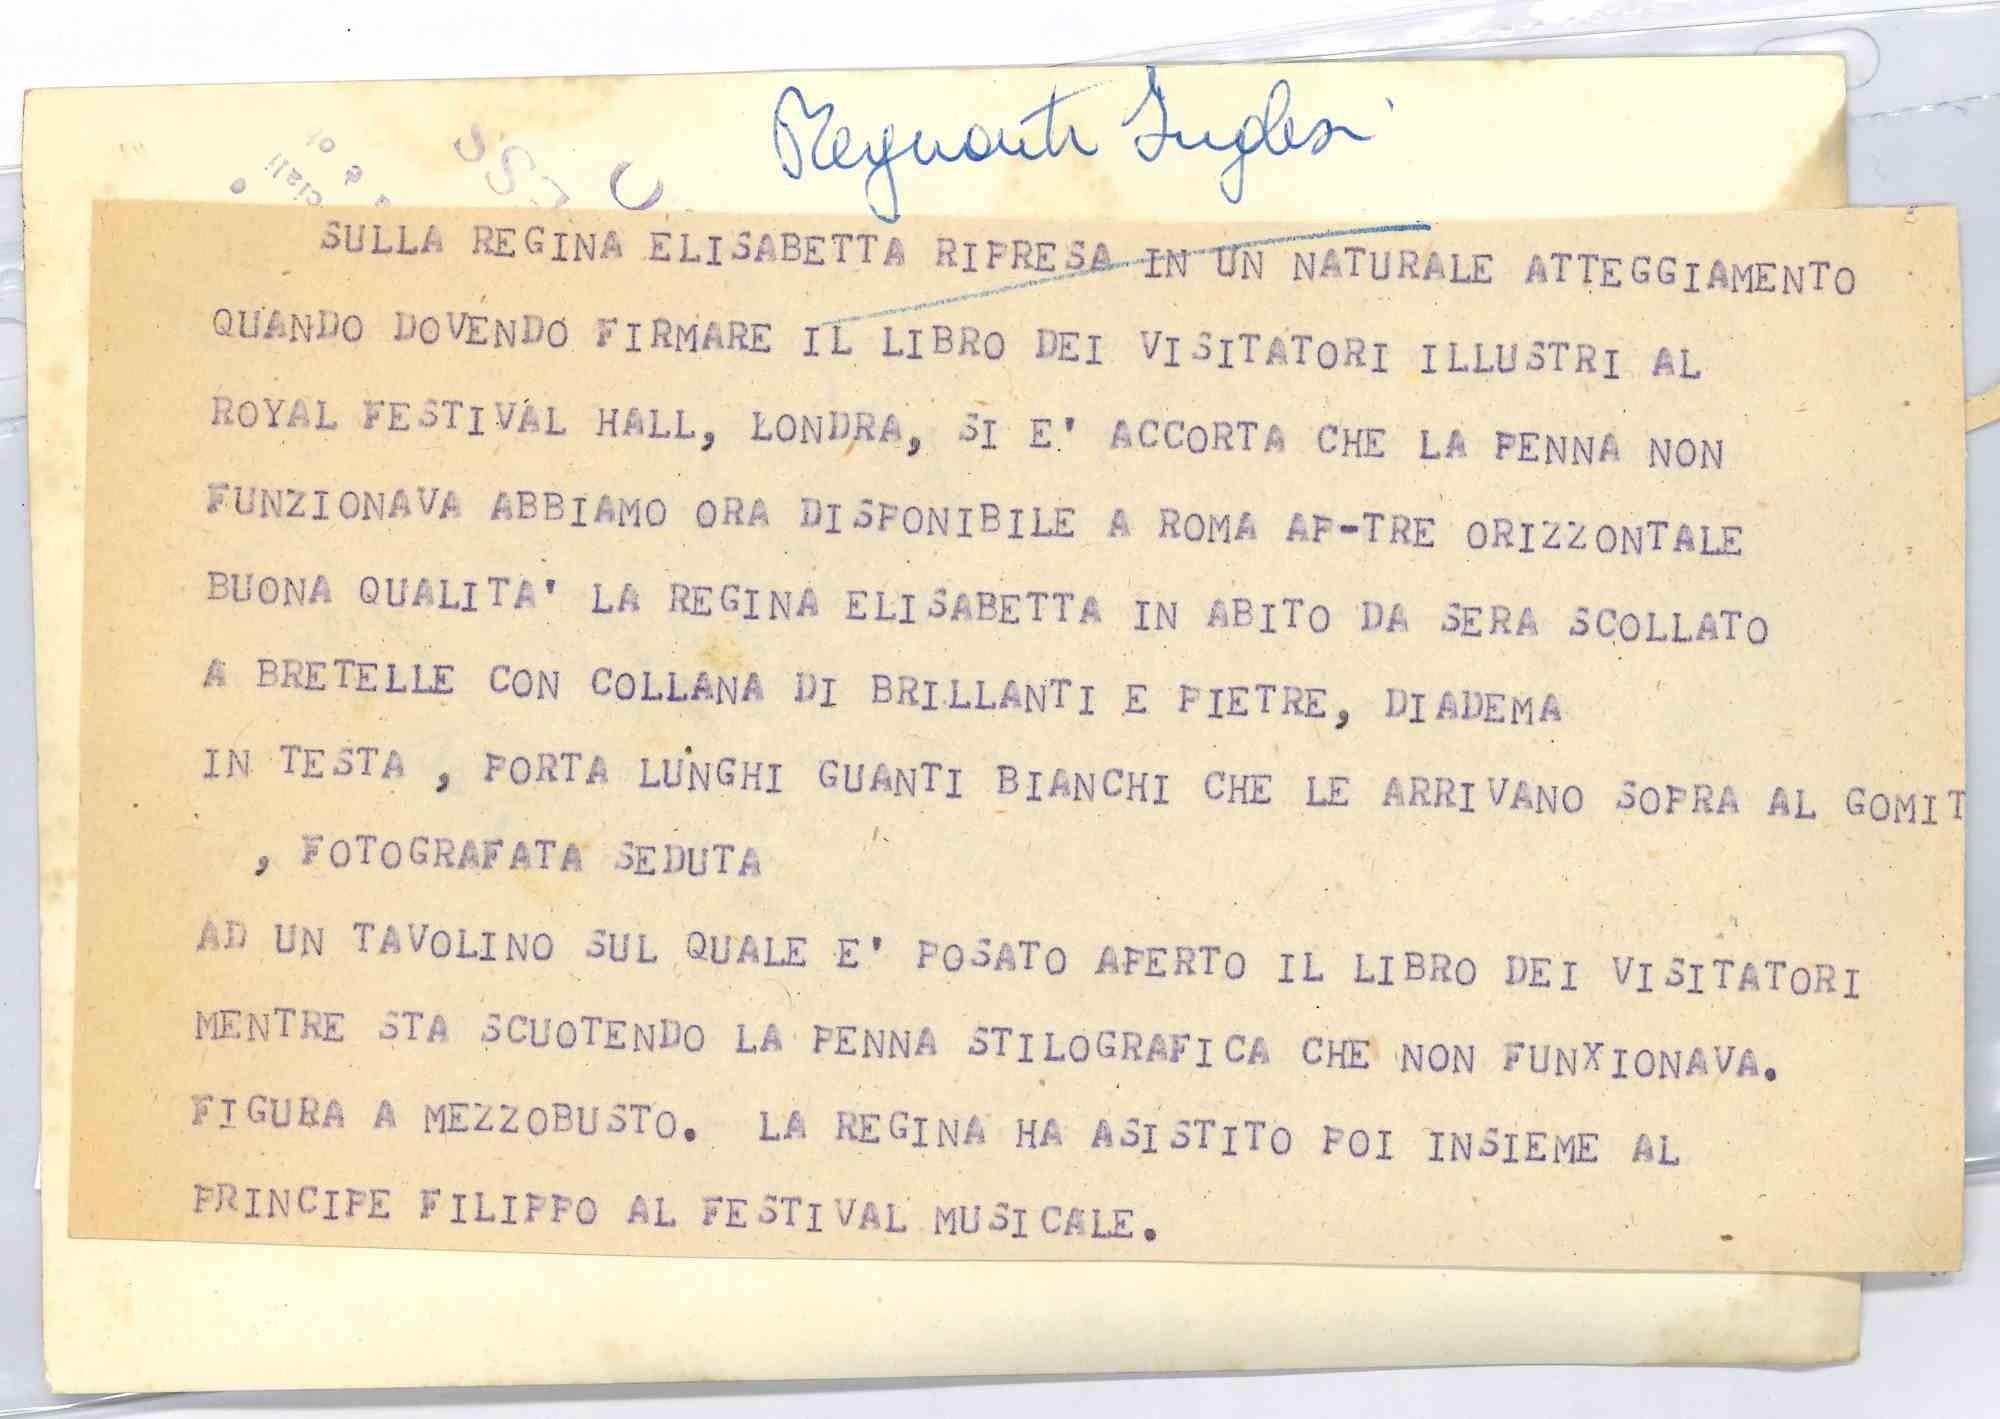 Regnanti Inglesi
SULLA REGINA ELISABETTA RIPRESA IN UN NATURALE ATTEGGIAMENTO
QUANDO DOVENDO FIRMARE IL LIBRO DEI VISITATORI ILLUSTRI AL
ROYAL FESTIVAL HALL, LONDRA, SI E' ACCORTA CHE LA PENNA NON
FUNZIONAVA ABBIAMO ORA DISPONIBILE A ROMA AP-TRE ORIZZONTALE
BUONA QUALITA' LA REGINA ELISABETTA IN ABITO DA SERA SCOLLATO
A BRETELLE CON COLLANA DI BRILLANTI E PIETRE, DIADEMA
IN TESTA , PORTA LUNGHI GUANTI BIANCHI CHE LE ARRIVANO SOPRA AL GOMIT
, FOTOGRAFATA SEDUTA
AD UN TAVOLINO SUL QUALE E' POSATO APERTO IL LIBRO DEI VISITATORI
MENTRE STA SCUOTENDO LA PENNA STILOGRAFICA CHE NON FUNXIONAVA.
FIGURA A MEZZOBUSTO. LA REGINA HA ASISTITO POI INSIEME AL
PRINCIPE FILIPPO AL FESTIVAL MUSICALE.